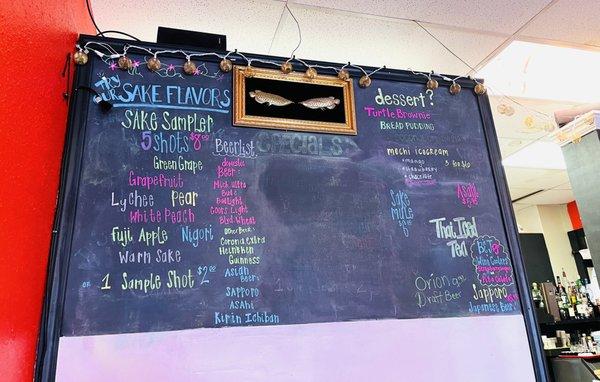 Try
OUR
SAKE FLAVORS
SAKE SAMPLER
5 SHOTS $8
Green Grape
Grapefruit
Lychee Pear
White Peach
Fuji Apple Nigori
WARM SAKE
OR 1 Sample Shot $2
BeerList
domestic
Beer:
Mich ultra
Bud
Budlight
Coors Light
Blue Wheat
Other Beer:
Corona Extra
Heineken
Guinness
ASIAN
Beer:
SAPPORO
ASAHI
Kirin Ichiban
SPECIALS
dessert?
Turtle Brownie
BREAD PUDDING
mochi icecream
mango
strawberry
chocolate
Sake
mule
ASAHI
Thai Iced
Tea
Orion
Draft Beer
SAPPORO
Japanese Beer